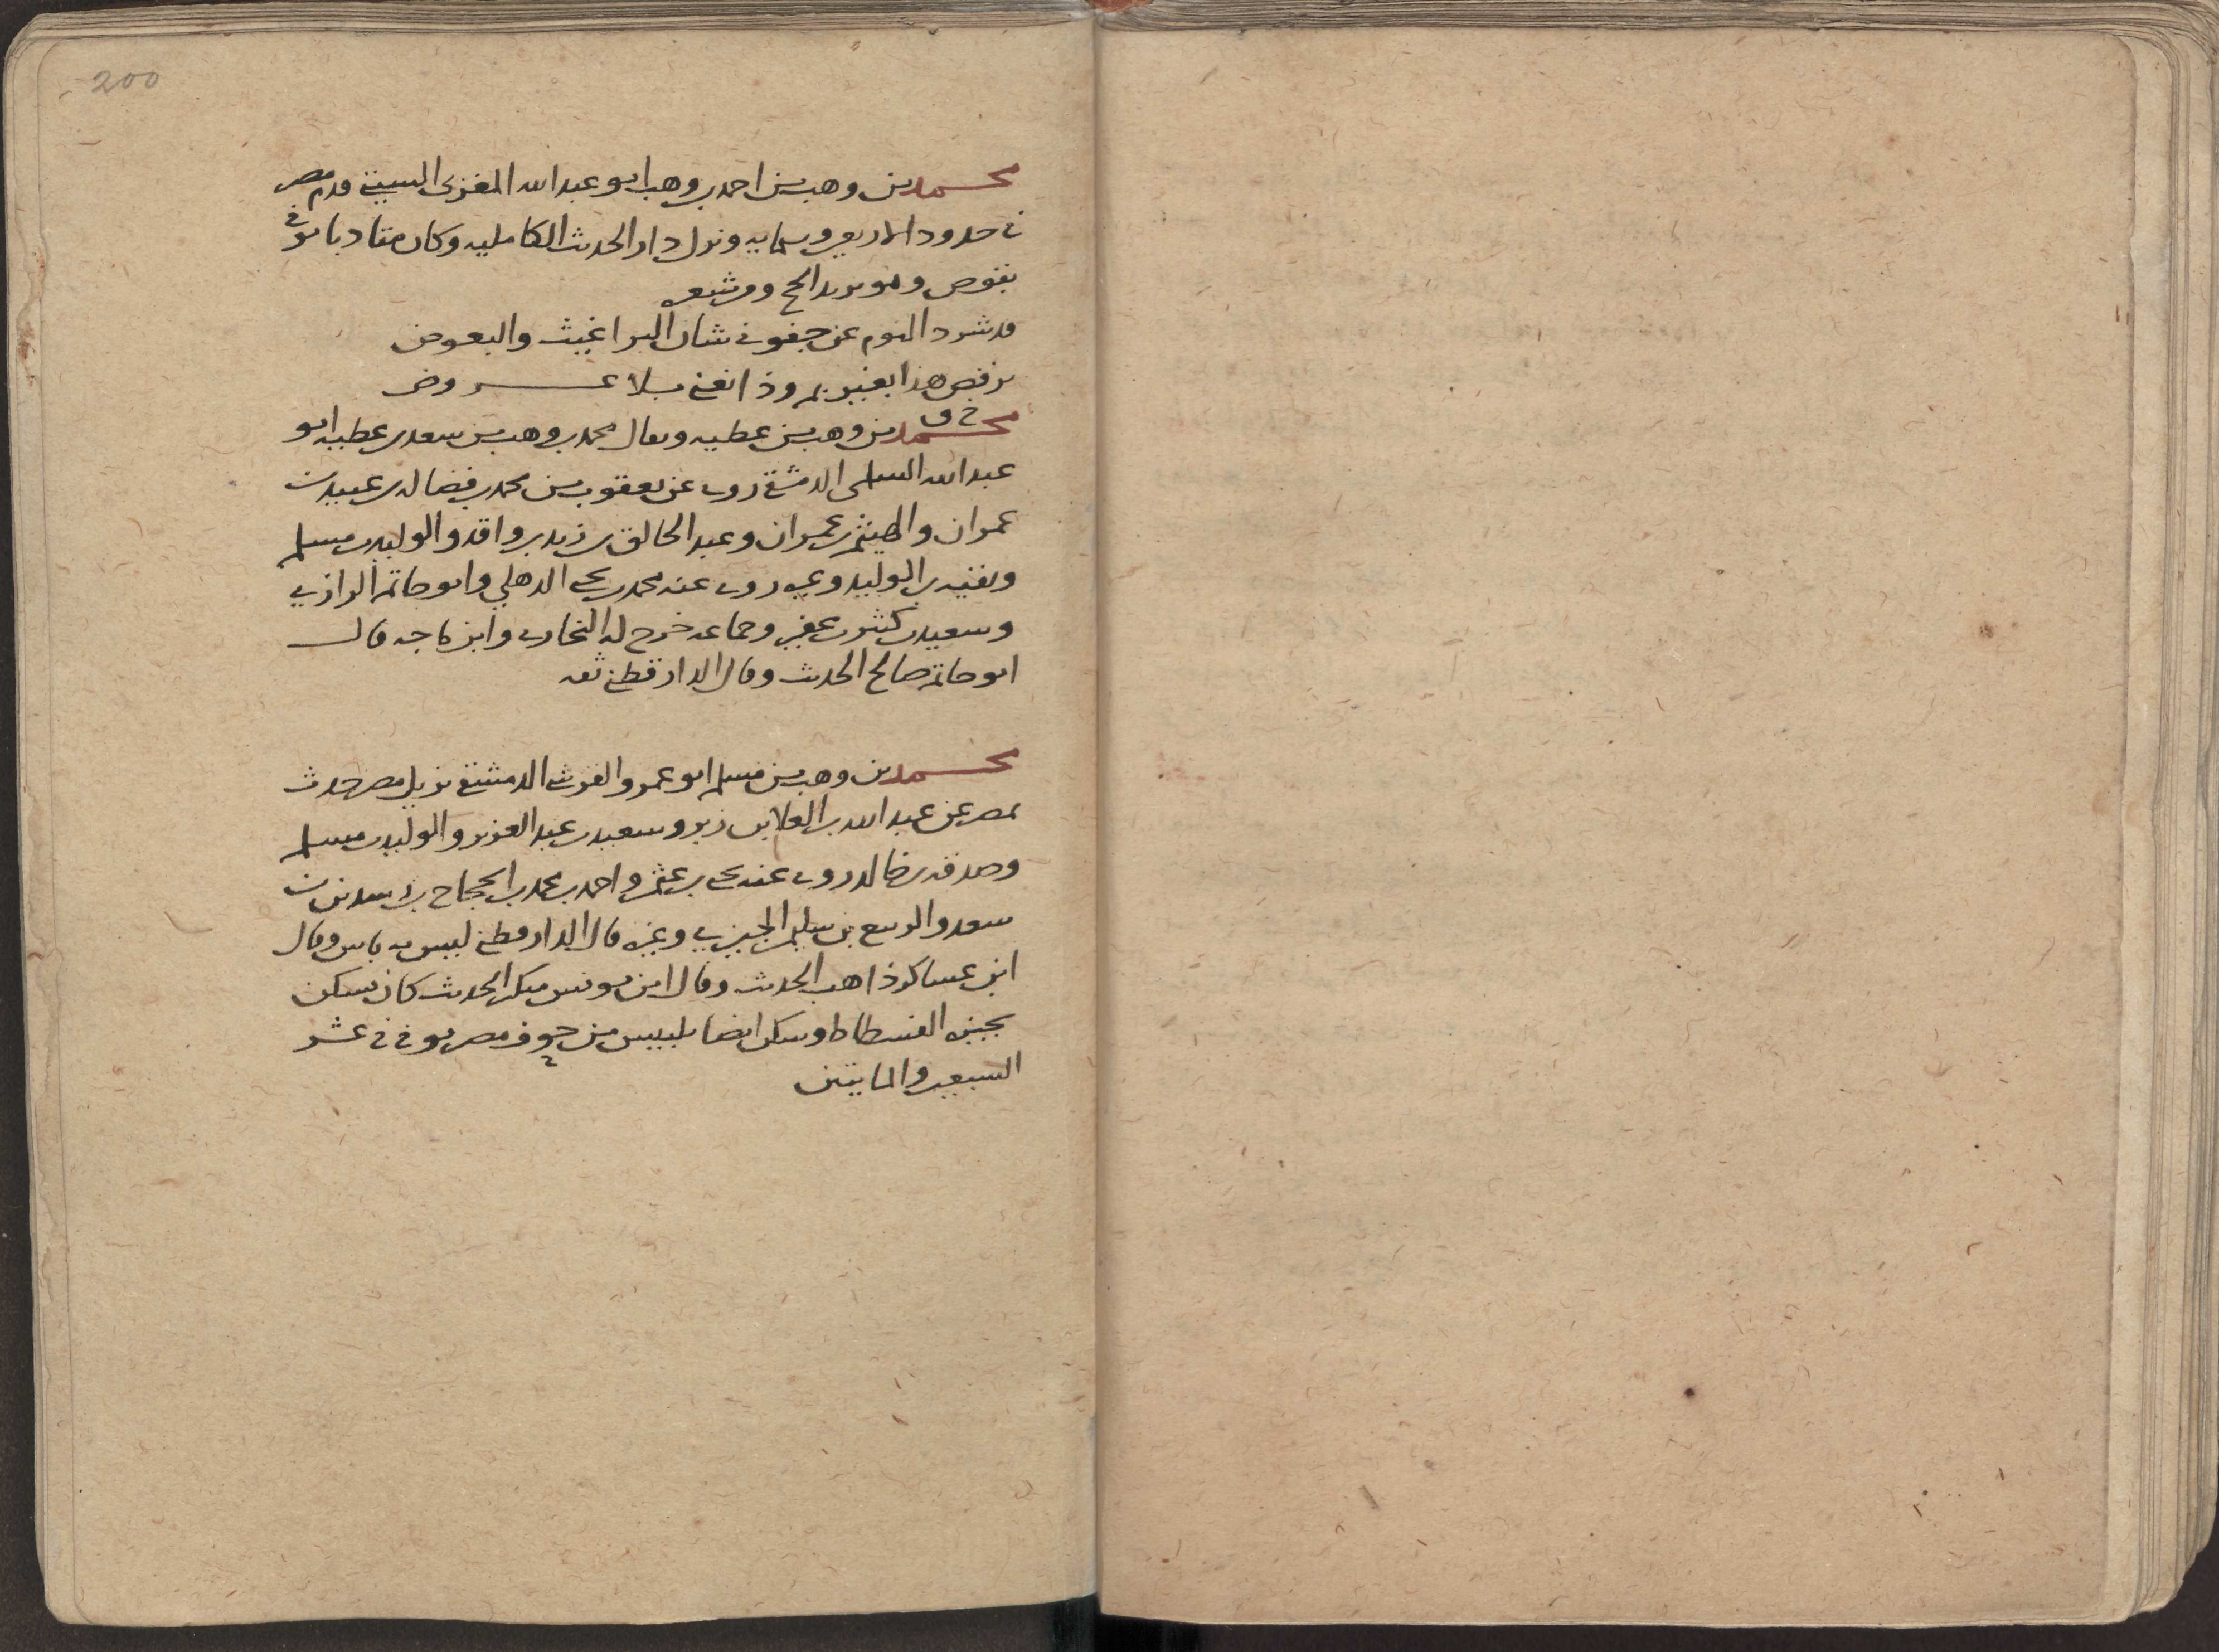 200
محمد بن وهب بن احمد بن وهب ابو عبد الله المغربى السبتي قدم مصر
في حدود الاربعين وستمايه ونزل دار الحديث الكامليه وكان متادبا توفي
بقوص وهو يريد الحج ومن شعره
قد شرد النوم عن جفوني شان البراغيث والبعوض
يرقص هذا بغير زمر وذا يغني بلا عروض
خ ق
محمد بن وهب بن عطيه ويقال محمد بن وهب بن سعد بن عطيه ابو
عبد الله السلمى الدمشقي روى عن يعقوب بن محمد بن فضاله بن عبيد بن
عمران والهيثم بن عمران وعبد الخالق بن زيد بن واقد والوليد بن مسلم
وبقيه بن الوليد وغيره روى عنه محمد بن يحيى الذهلي وابو حاتم الرازي
وسعيد بن كثير بن عفير وجماعه خرج له البخاري وابن ماجه قال
ابو حاتم صالح الحديث وقال الدارقطني ثقه
محمد بن وهب بن مسلم ابو عمرو القرشي الدمشقي نزيل مصر حدث
بمصر عن عبد الله بن العلا بن زبر وسعيد بن عبد العزيز والوليد بن مسلم
وصدقه بن خالد روى عنه يحيى بن عثمن واحمد بن محمد بن الحجاج بن رشدين بن
سعد والربيع بن سليمن الجيزي وغيره قال الدارقطني ليس به باس وقال
ابن عساكر ذاهب الحديث وقال ابن يونس منكر الحديث كان يسكن
بجيزه الفسطاط وسكن ايضا بلبيس من حوف مصر توفي في عشر
السبعين والمايتين